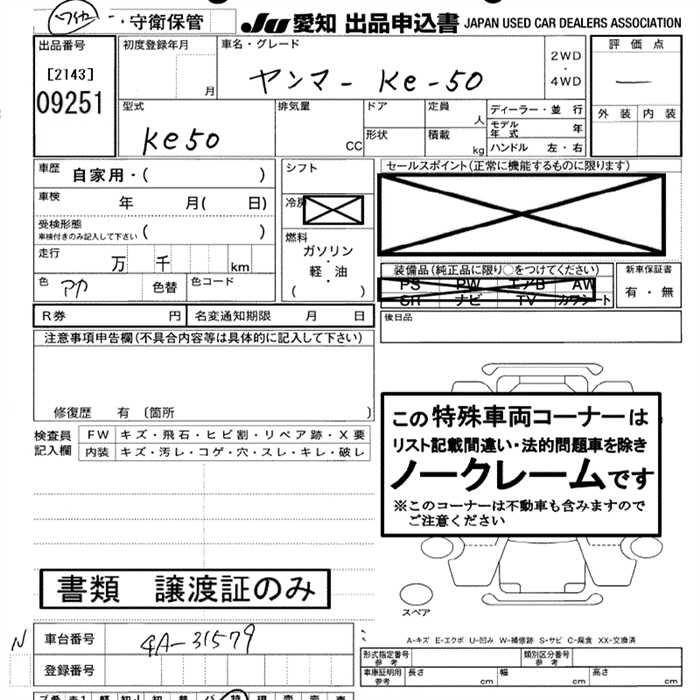 ・守衛保管
JU 愛知 出品申込書 JAPAN USED CAR DEALERS ASSOCIATION
出品番号
[2143]
09251
初度登録年月
月
車名・グレード
ヤンマー Ke-50
2WD
・
4WD
評価点
―
外装 内装
型式
Ke50
排気量
CC
ドア
形状
定員
人
積載
kg
ディーラー・並行
モデル年式 年
ハンドル 左・右
車歴 自家用・( )
車検 年 月( 日)
受検形態
車検付きのみ記入して下さい ( )
走行 万 千 km
色 アカ 色替 色コード
シフト
冷房
燃料
ガソリン
・
軽・油
( )
セールスポイント(正常に機能するものに限ります)
装備品(純正品に限り○をつけてください)
PS PW エアB AW
SR ナビ TV カワシート
新車保証書
有・無
R券 円 名変通知期限 月 日
後日品
注意事項申告欄(不具合内容等は具体的に記入して下さい)
修復歴 有 〔箇所 〕
検査員記入欄
FW キズ・飛石・ヒビ割・リペア跡・X要
内装 キズ・汚レ・コゲ・穴・スレ・キレ・破レ
この特殊車両コーナーは
リスト記載間違い・法的問題車を除き
ノークレームです
※このコーナーは不動車も含みますので
ご注意ください
書類 譲渡証のみ
スペア
A-キズ E-エクボ U-凹み W-補修跡 S-サビ C-腐食 XX-交換済
N 車台番号 4A-31579
登録番号
形式指定番号
参考
類別区分番号
参考
車庫証明用
参考
長さ 幅 高さ
cm